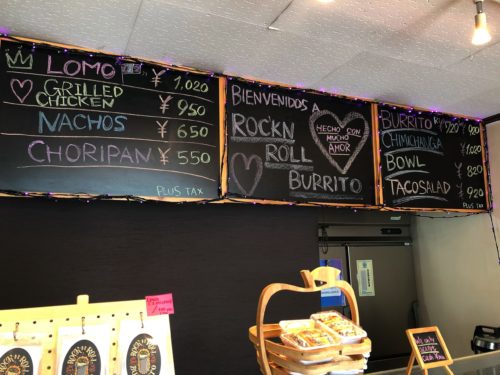 LOMO ¥ 1,020
GRILLED
CHICKEN ¥ 950
NACHOS ¥ 650
CHORIPAN ¥ 550
PLUS TAX
BIENVENIDOS A
ROCK'N
ROLL
BURRITO
HECHO CON
MUCHO
AMOR
BURRITO
CHIMICHANGA ¥ 1,020
BOWL ¥ 820
TACO SALAD ¥ 920
PLUS TAX